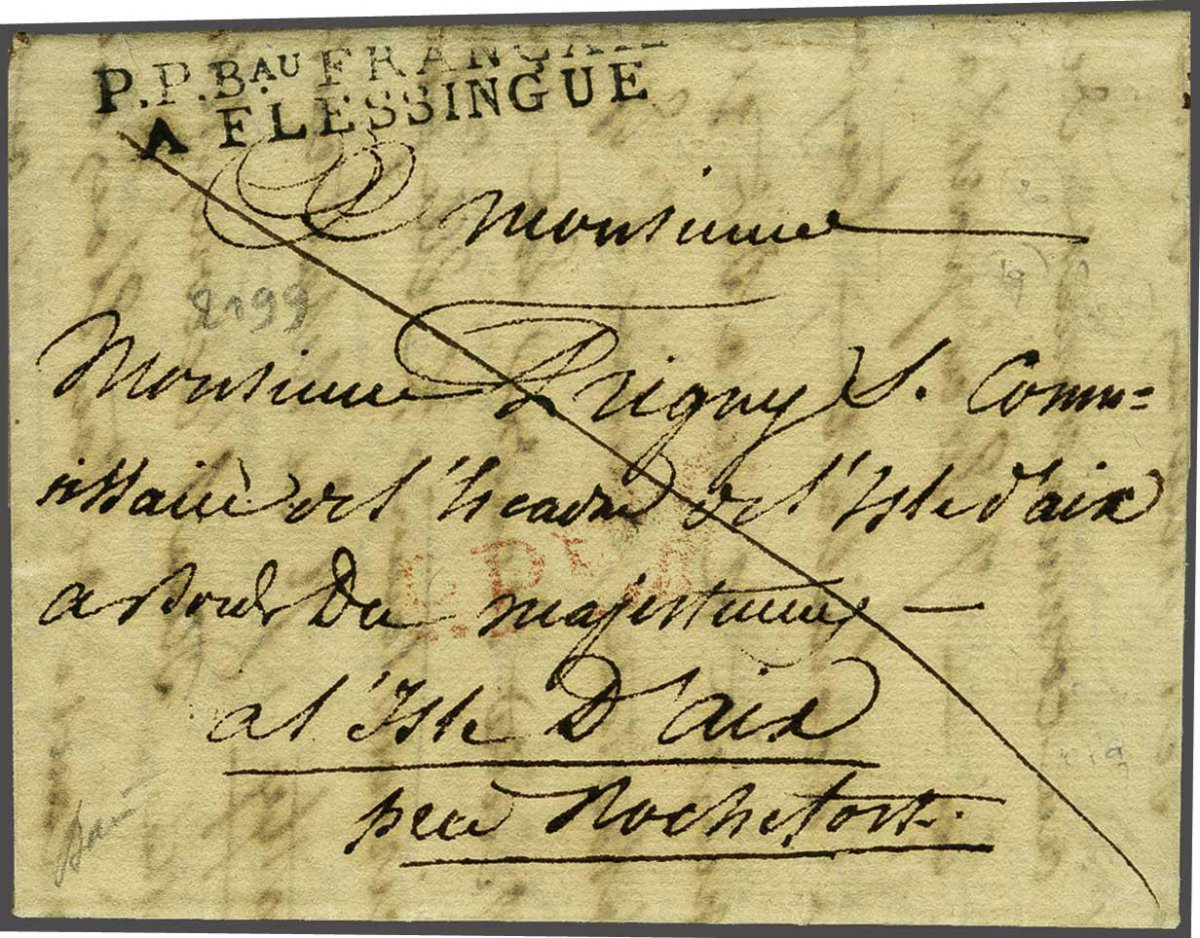 P.P.BAU FRANÇAIS
A FLESSINGUE
Monsieur
2199
Monsieur Prigny S. Comm=
issaire de l'Escadre de l'Isle d'aix
a Bord Du majestueux —
a l'Isle D'aix
par Rochefort.